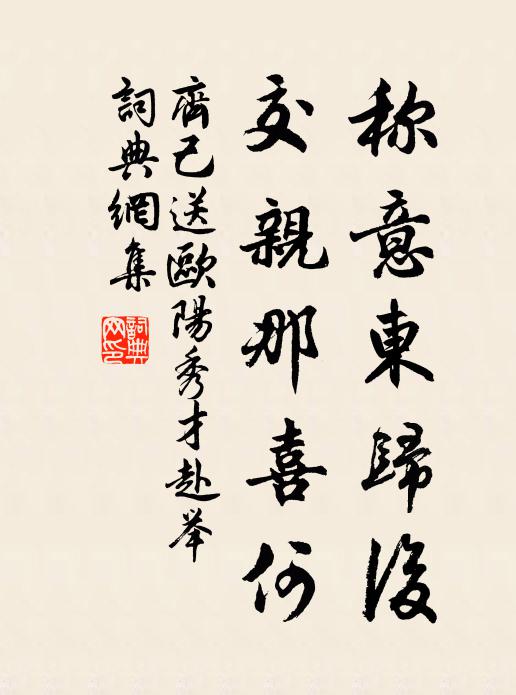 称意東歸後
交親那喜何
齊己送歐陽秀才赴举
詞典網集
詞典網印